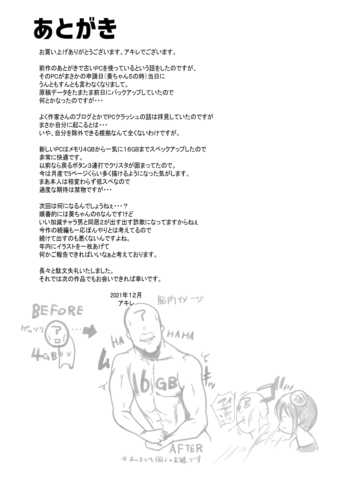 あとがき
お買い上げありがとうございます、アキレでございます。
前作のあとがきで古いPCを使っているという話をしたのですが、
そのPCがまさかの申請日(葵ちゃん5の時)当日に
うんともすんとも言わなくなりまして、
原稿データをたまたま前日にバックアップしていたので
何とかなったのですが・・・
よく作家さんのブログとかでPCクラッシュの話は拝見していたのですが
まさか自分に起こるとは・・・
いや、自分を除外できる根拠なんて全くないわけですが。
新しいPCはメモリ4GBから一気に16GBまでスペックアップしたので
非常に快適です。
以前なら戻るボタン3連打でクリスタが固まってたので。
今は月産で5ページくらい多く描けるようになった気がします。
まあ本人は相変わらず低スペなので
過度な期待は禁物ですが・・・
次回は何になるんでしょうねぇ・・・?
順番的には葵ちゃんの6なんですけど
いい加減チャラ男と同居2が出す出す詐欺になってますからねぇ
今作の続編も一応ぼんやりとは考えてるので
続けて出すのも悪くないんですよね。
年内にイラストを一枚あげて
何かご報告できればいいなぁと考えております。
長々と駄文失礼いたしました。
それでは次の作品でもお会いできれば幸いです。
2021年12月
アキレ
脳内イメージ
BEFORE
4GB
?
HA
HAHA
16GB
AFTER